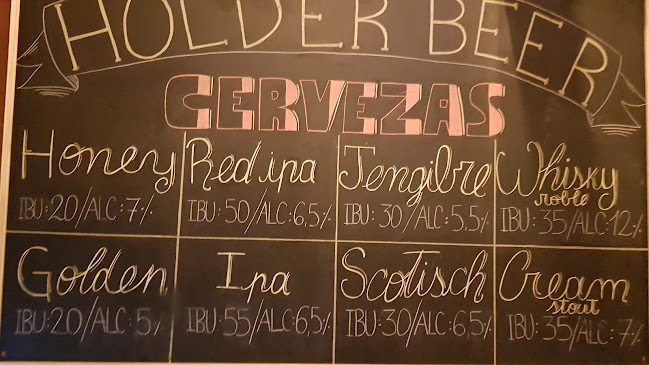 HOLDER BEER
CERVEZAS
Honey
IBU:20/ALC:7%
Red ipa
IBU:50/ALC:6,5%
Jengibre
IBU:30/ALC:5,5%
Whisky
roble
IBU:35/ALC:12%
Golden
IBU:20/ALC:5%
Ipa
IBU:55/ALC:6,5%
Scotisch
IBU:30/ALC:6,5%
Cream
stout
IBU:35/ALC:7%